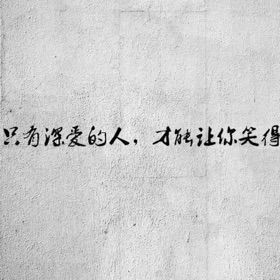 只有深爱的人，才能让你笑得